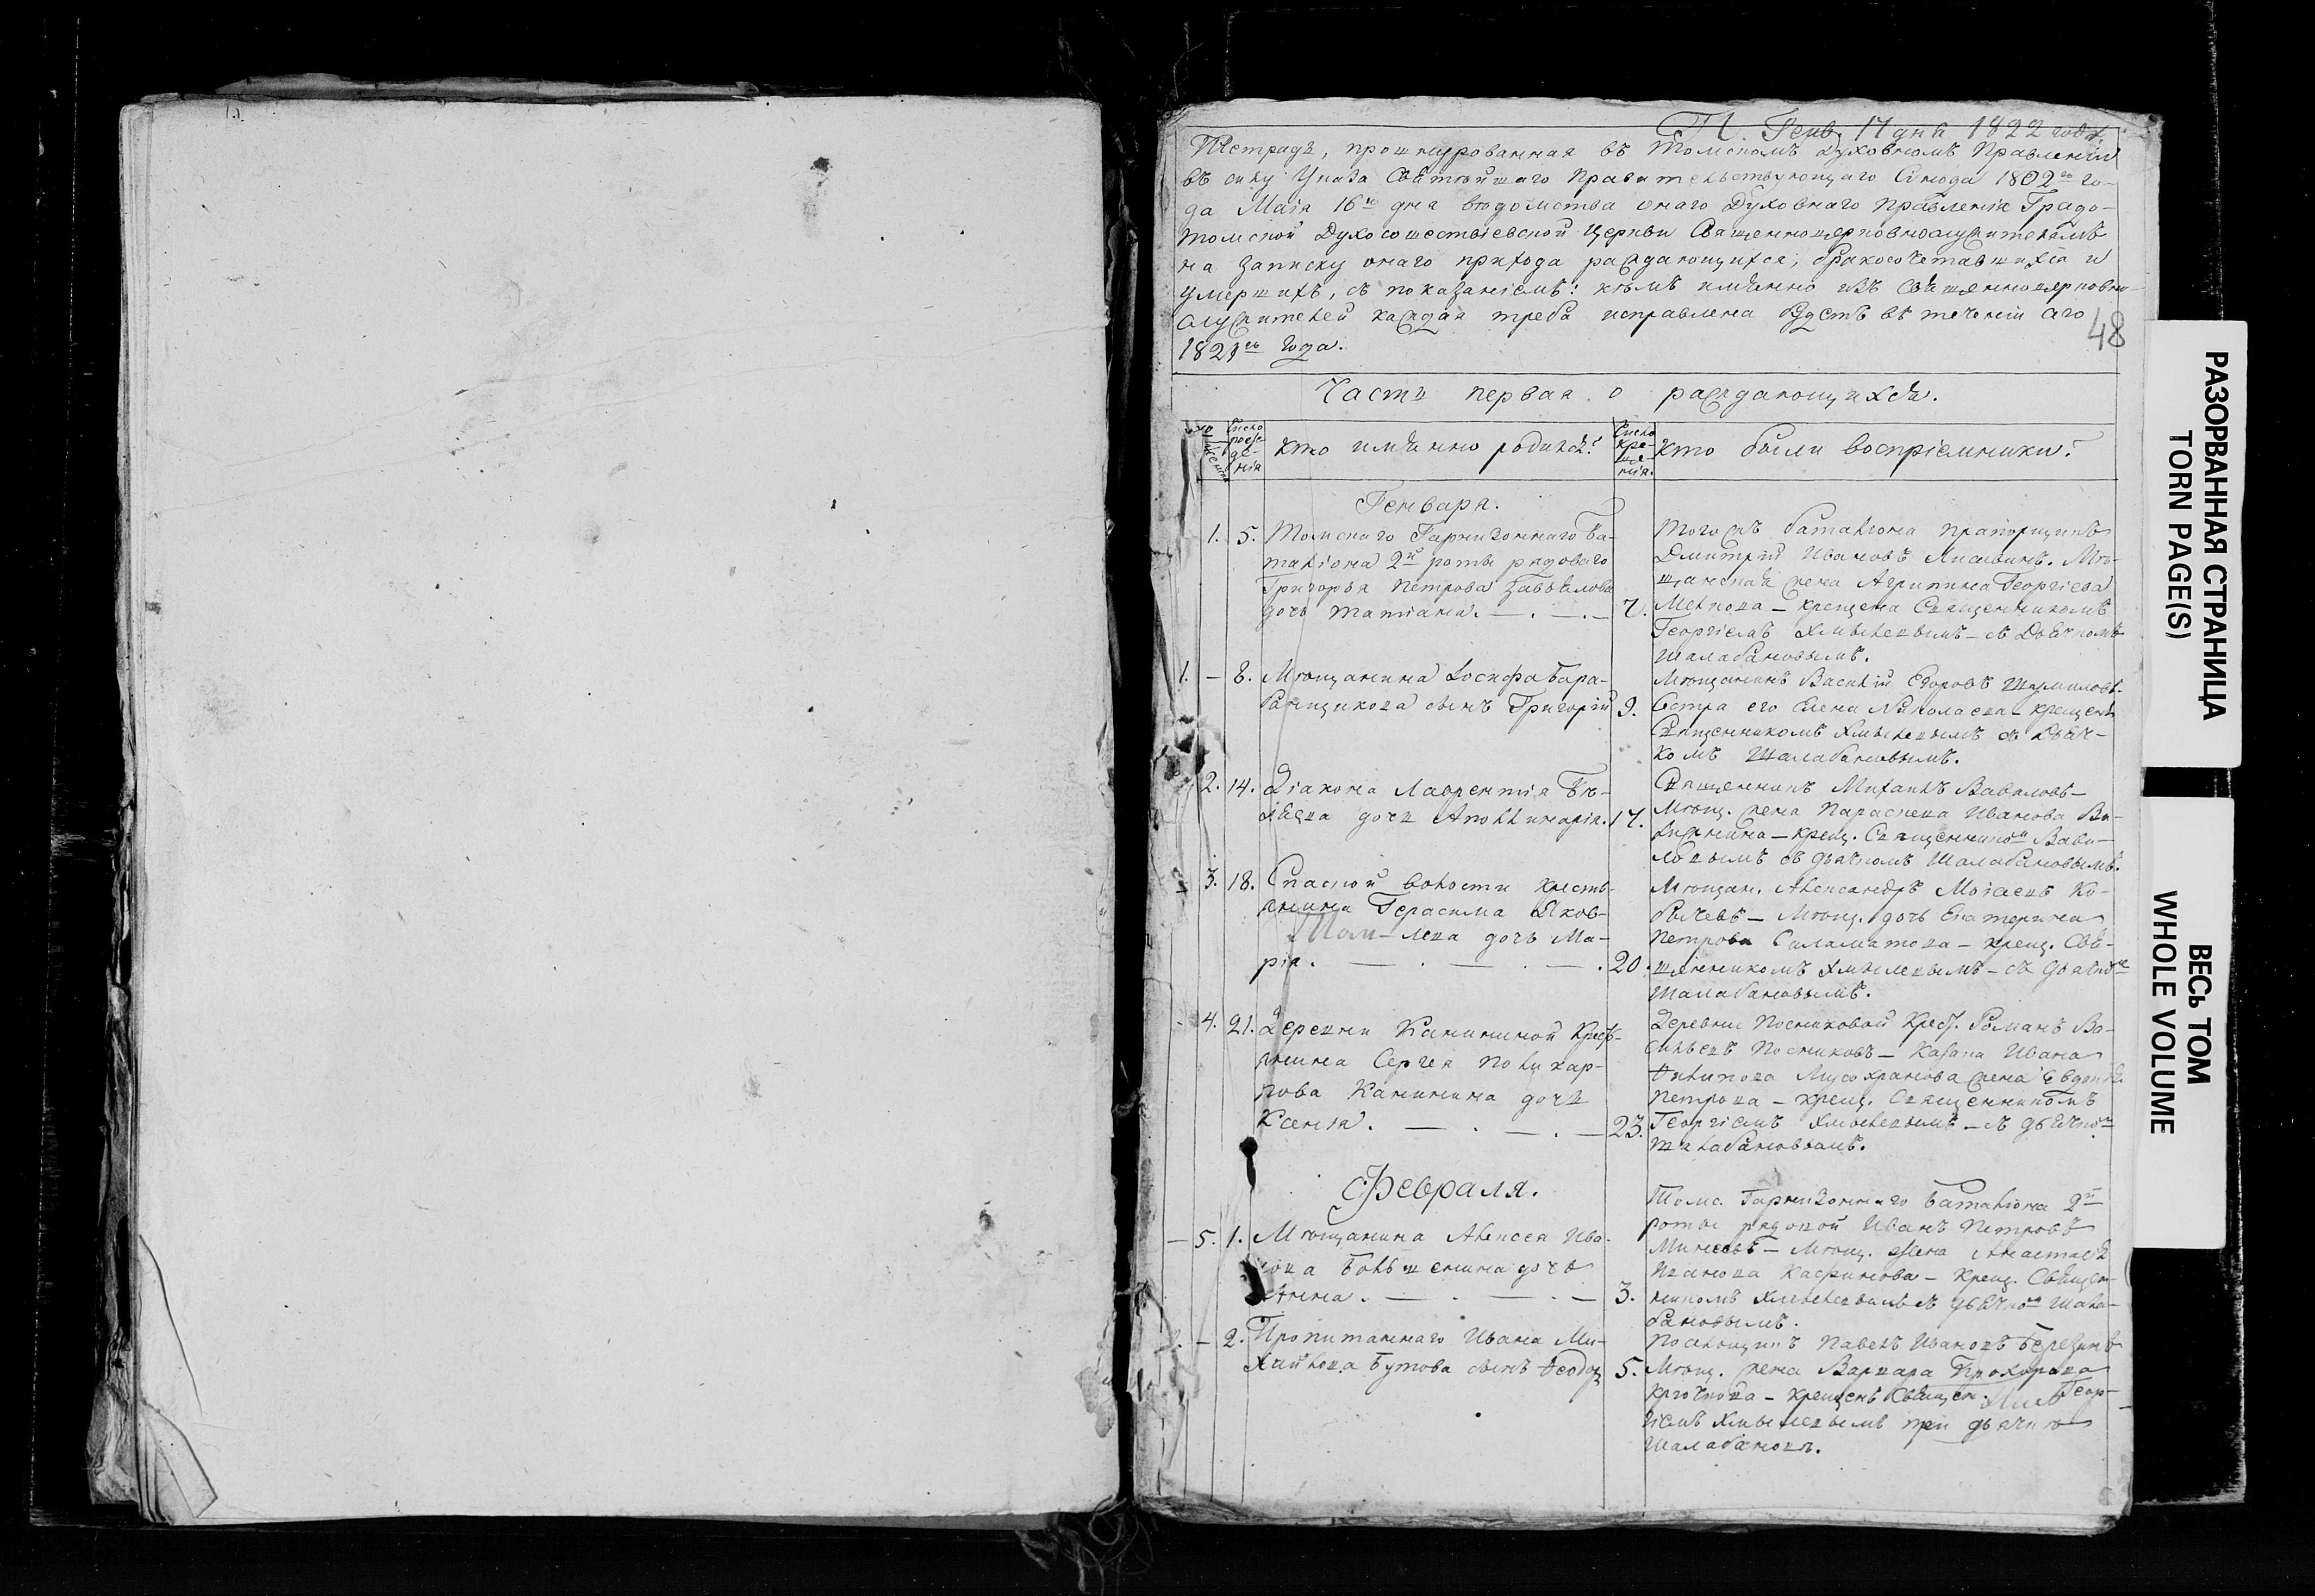 П. Генв. 17 дня 1822 года
Тетрадь, прошнурованная въ Томскомъ Духовномъ Правленіи
въ силу Указа Святѣйшаго Правительствующаго Синода 1802го го-
да Маія 16го дня вѣдомства онаго Духовнаго Правленія Градо-
томской Духосошествіевской Церкви Священноцерковнослужителямъ
на записку онаго прихода раждающихся, бракосочетавшихся и
умершихъ, съ показаніемъ: кѣмъ имянно изъ Священноцерковно-
служителей каждая треба исправлена будетъ въ теченіи сего
1821го года.
48
Часть первая о раждающихся.
Число рож-де-нія
Кто имянно родился?
Число кре-ще-нія.
Кто были воспріемники?
Генваря.
1. 5. Томскаго Гарнизоннаго Ба-
таліона 2й роты рядоваго
Григорья Петрова Завьялова
дочь Татіана. — . — . — 7.
Того жъ баталіона прапорщикъ
Дмитрій Ивановъ Лисицинъ. Мѣ-
щанская жена Агрипина Георгіева
Мелкова — крещена Священникомъ
Георгіемъ Хмылевымъ — съ Дьячкомъ
Шалабановымъ.
1. — 8. Мѣщанина Іосифа Бара-
банщикова сынъ Григорій 9.
Мѣщанинъ Василій Егоровъ Шумиловъ.
Сестра его Елена Николаева — крещенъ
Священникомъ Хмылевымъ съ Дьяч-
комъ Шалабановымъ.
2. 14. Діакона Лаврентія Бѣ-
ляева дочь Аполлинарія. 17.
Священникъ Михаилъ Вавиловъ —
Мѣщ. жена Параскева Иванова Ви-
— крещ. Священникомъ Вави-
ловымъ съ дьячкомъ Шалабановымъ.
3. 18. Спаской волости кресть-
янина Герасима Яков-
лева дочь Ма-
рія. — . — . — . 20.
Мѣщан. Александръ Моісеевъ Ко-
бычевъ — Мѣщ. дочь Екатерина
Петрова Саламатова — крещ. Свя-
щенникомъ Хмылевымъ — съ дьячко
Шалабановымъ.
4. 21. Деревни Канининой Крест-
янина Сергея Поликар-
пова Канинина дочь
Ксенія. — . — . — 23.
Деревни Посниковой Крест. Романъ Ва-
сильевъ Посниковъ — Казака Ивана
Филипова Мусохранова жена Евдокія
Петрова — крещ. Священникомъ
Георгіемъ Хмылевымъ — съ дьячком
Шалабановымъ.
Февраля.
5. 1. Мѣщанина Алексея Ива-
нова Большенина дочь
Анна. — . — . — 3.
Томс. Гарнизоннаго Баталіона 2й
роты рядовой Иванъ Петровъ
Минеевъ — Мѣщ. жена Анастасія
Иванова Касьянова — Крещ. Священ-
никомъ Хмылевымъ съ дьячком Шала-
бановымъ.
— 2. Пропитаннаго Ивана Ми-
хайлова Бутова сынъ Ѳеодоръ 5.
Посельщикъ Павелъ Ивановъ Березинъ
Мѣщ. жена Варвара Прохорова
Крючкова — крещенъ Священ. Геор-
гіемъ Хмылевымъ при дьячкѣ
Шалабановѣ.
РАЗОРВАННАЯ СТРАНИЦА
TORN PAGE(S)
ВЕСЬ ТОМ
WHOLE VOLUME